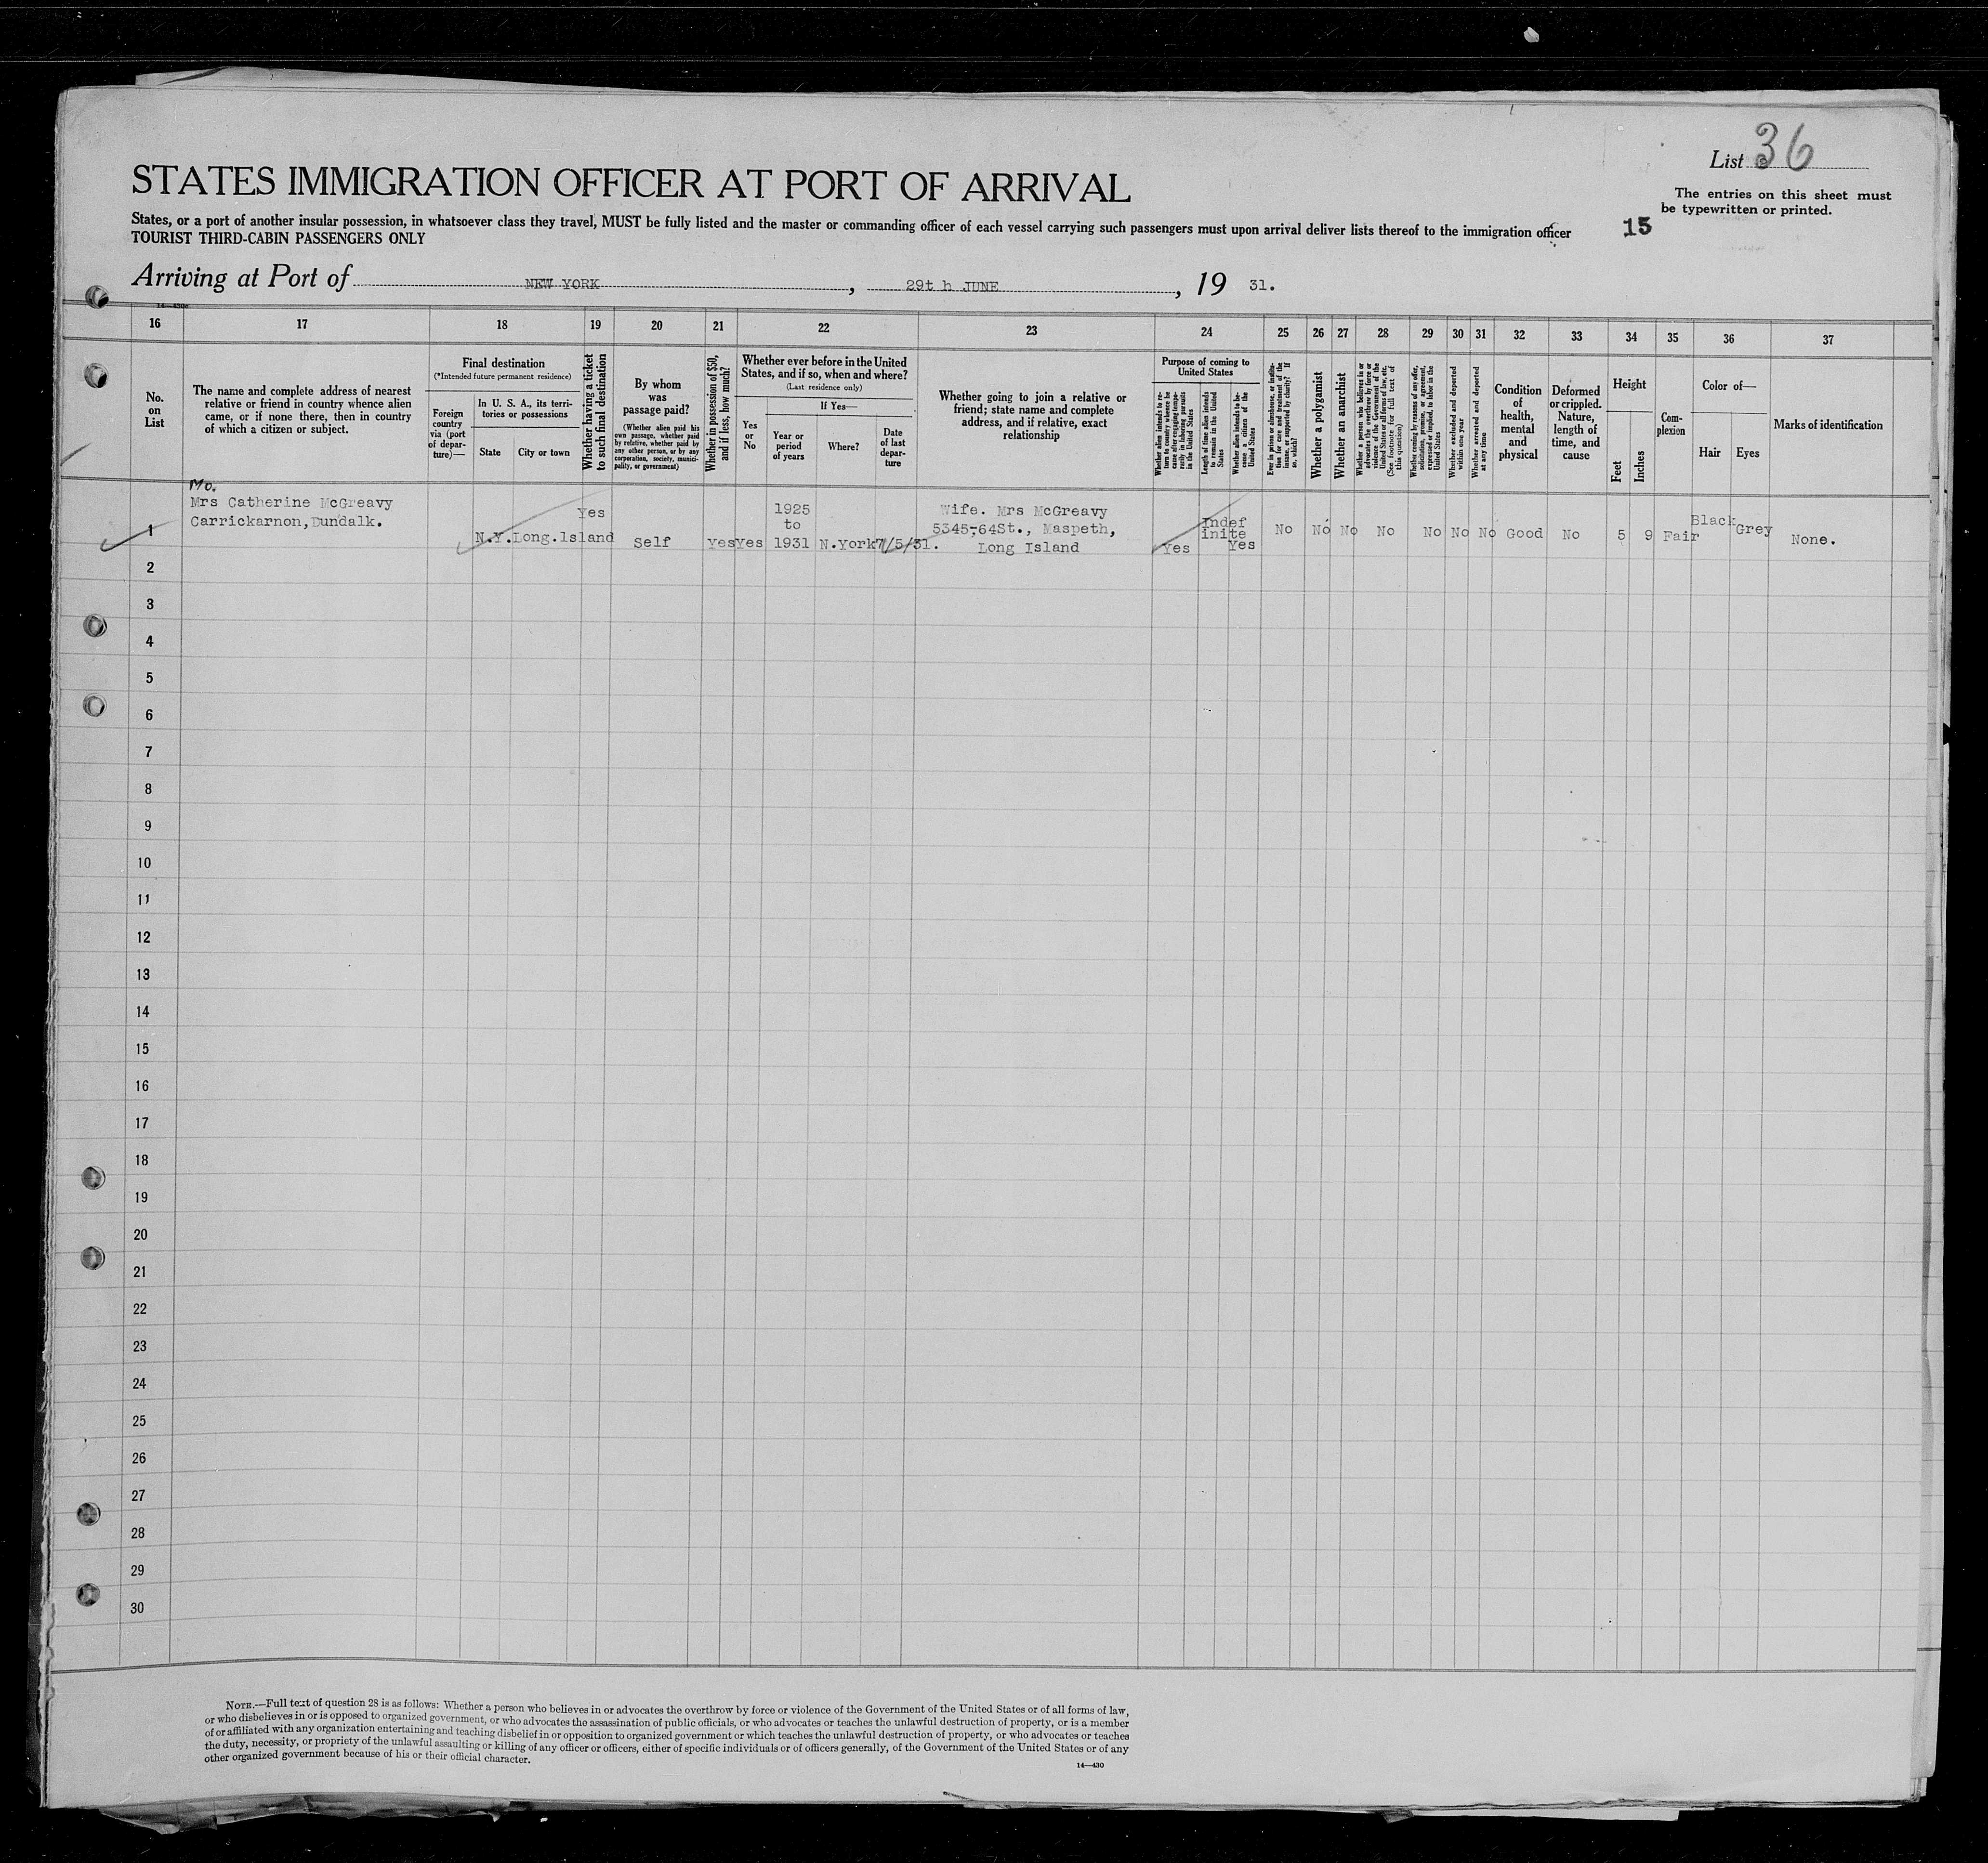 List 36
STATES IMMIGRATION OFFICER AT PORT OF ARRIVAL
The entries on this sheet must
be typewritten or printed.
States, or a port of another insular possession, in whatsoever class they travel, MUST be fully listed and the master or commanding officer of each vessel carrying such passengers must upon arrival deliver lists thereof to the immigration officer
15
TOURIST THIRD-CABIN PASSENGERS ONLY
Arriving at Port of NEW YORK, 29t h JUNE, 19 31.
16 17 18 19 20 21 22 23 24 25 26 27 28 29 30 31 32 33 34 35 36 37
No.
on
List
The name and complete address of nearest
relative or friend in country whence alien
came, or if none there, then in country
of which a citizen or subject.
Final destination
(*Intended future permanent residence)
Foreign
country
via (port
of depar-
ture)—
In U. S. A., its terri-
tories or possessions
State City or town
Whether having a ticket
to such final destination
By whom
was
passage paid?
(Whether alien paid his
own passage, whether paid
by relative, whether paid by
any other person, or by any
corporation, society, munici-
pality, or government)
Whether in possession of $50,
and if less, how much?
Whether ever before in the United
States, and if so, when and where?
(Last residence only)
Yes
or
No
If Yes—
Year or
period
of years
Where?
Date
of last
depar-
ture
Whether going to join a relative or
friend; state name and complete
address, and if relative, exact
relationship
Purpose of coming to
United States
Whether alien intends to re-
turn to country whence he
came after engaging tempo-
rarily in laboring pursuits
in the United States
Length of time alien intends
to remain in the United
States
Whether alien intends to be-
come a citizen of the
United States
Ever in prison or almshouse, or institu-
tion for care and treatment of the
insane, or supported by charity? If
so, which?
Whether a polygamist
Whether an anarchist
Whether a person who believes in or
advocates the overthrow by force or
violence of the Government of the
United States or all forms of law, etc.
(See footnote for full text of
this question)
Whether coming by reasons of any offer,
solicitation, promise, or agreement,
expressed or implied, to labor in the
United States
Whether excluded and deported
within one year
Whether arrested and deported
at any time
Condition
of
health,
mental
and
physical
Deformed
or crippled.
Nature,
length of
time, and
cause
Height
Feet
Inches
Com-
plexion
Color of—
Hair Eyes
Marks of identification
Mo.
Mrs Catherine McGreavy
Carrickarnon, Dundalk.
1
N.Y. Long.Island
Yes
Self
yes
Yes
1925
to
1931
N.York
7/5/31.
Wife. Mrs McGreavy
5345-64St., Maspeth,
Long Island
Yes
Indef
inite
Yes
No No No No No No No Good No 5 9 Fair
Black
Grey
None.
2
3
4
5
6
7
8
9
10
11
12
13
14
15
16
17
18
19
20
21
22
23
24
25
26
27
28
29
30
NOTE.—Full text of question 28 is as follows: Whether a person who believes in or advocates the overthrow by force or violence of the Government of the United States or of all forms of law,
or who disbelieves in or is opposed to organized government, or who advocates the assassination of public officials, or who advocates or teaches the unlawful destruction of property, or is a member
of or affiliated with any organization entertaining and teaching disbelief in or opposition to organized government or which teaches the unlawful destruction of property, or who advocates or teaches
the duty, necessity, or propriety of the unlawful assaulting or killing of any officer or officers, either of specific individuals or of officers generally, of the Government of the United States or of any
other organized government because of his or their official character.
14—430